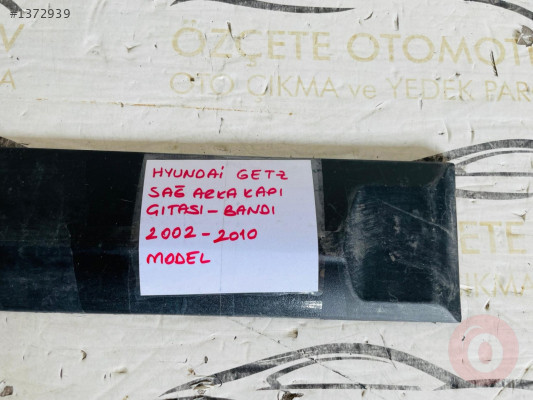 #1372939
ÖZÇETE OTOMOTİV
OTO ÇIKMA ve YEDEK PAR
HYUNDAİ GETZ
SAĞ ARKA KAPI
GITASI-BANDI
2002-2010
MODEL